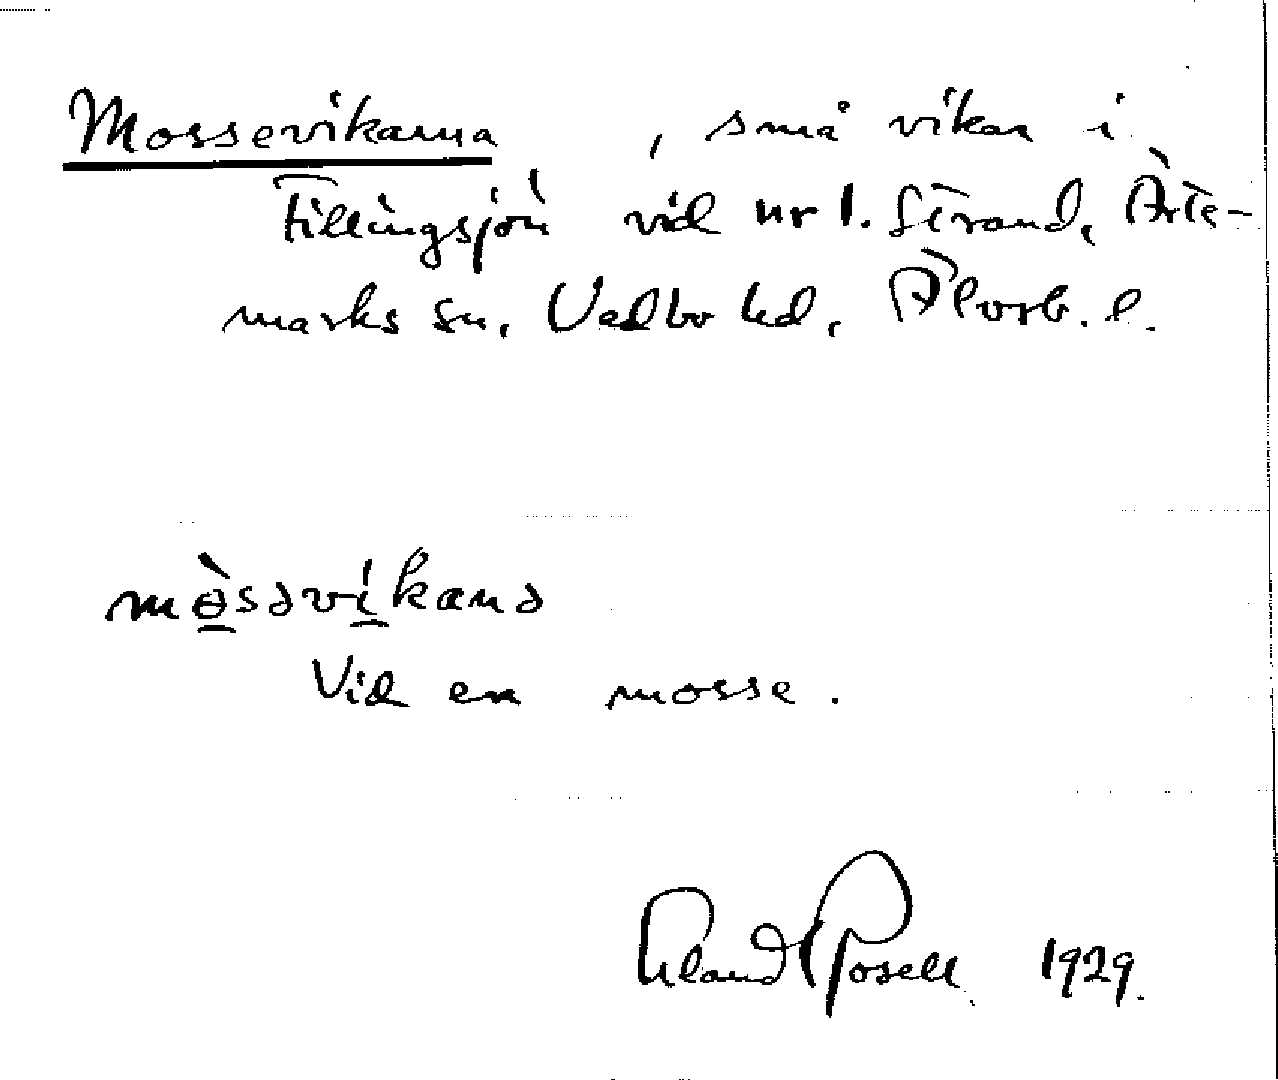 Mossevikarna, små vikar i
Tillingsjön vid nr 1. Strand, Ärte-
marks sn, Vedbo hd, Älvsb. l.
mòsəvíkanə
Vid en mosse.
Erland Rosell 1929.